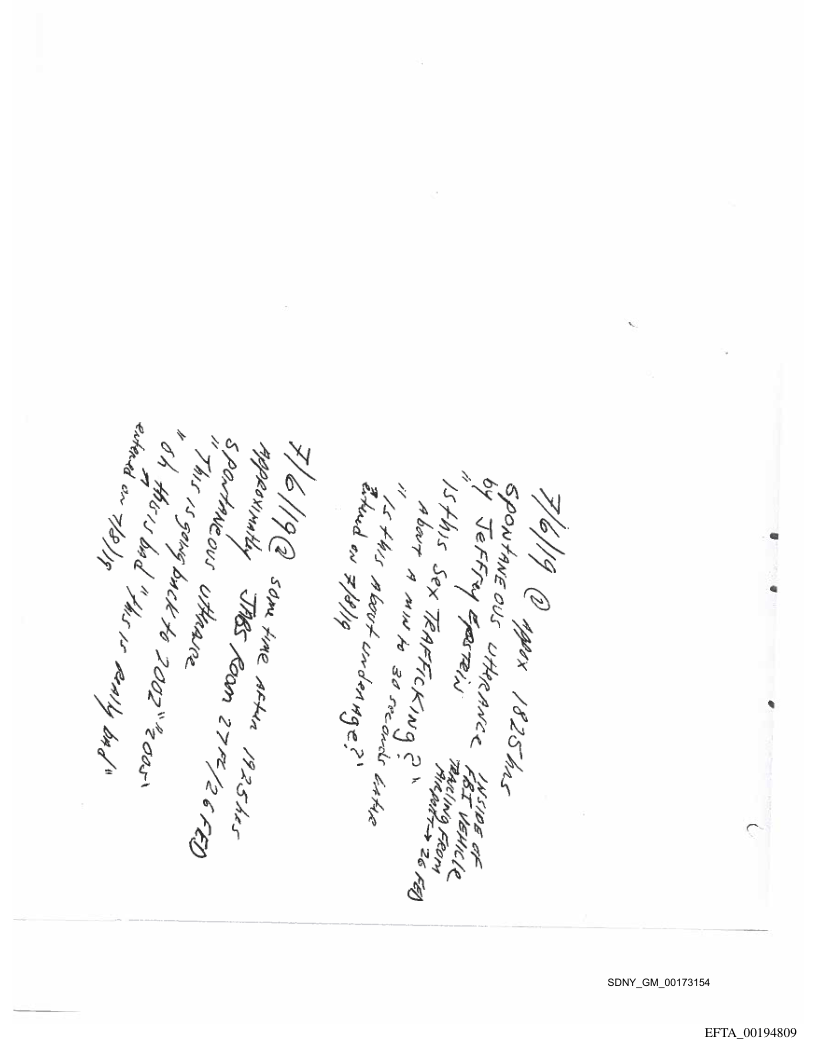 7/6/19 @ Approx 1825hrs
SPONTANEOUS UTTERANCE
by JEFFRY EPSTEIN
INSIDE OF
FBI VEHICLE
TRAVLING FROM
AIRPORT → 26 FED
"Is this SEX TRAFFICKING?"
About A min to 30 seconds later
"Is this About underage?"
entered on 7/8/19
7/6/19 @ some time AFTER 1925hrs
Approximatly JABS Room 27FL/26 FED
SPONTANEOUS Utterance
"This is going back to 2002" "2005"
"Oh this is bad" "this is really bad"
entered on 7/8/19
SDNY_GM_00173154
EFTA_00194809